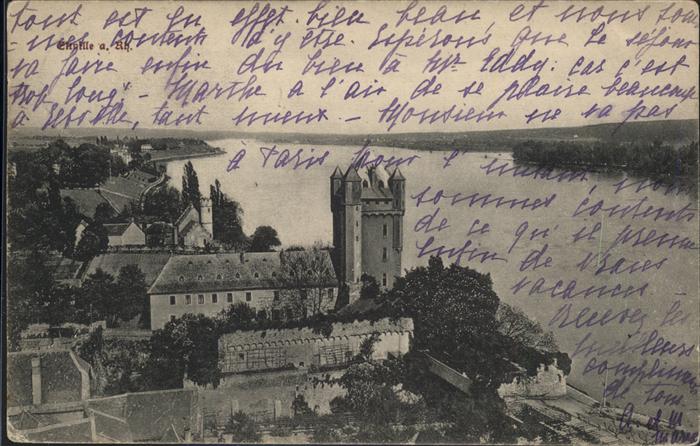 tout est en effet bien beau, et nous som-
mes contents d'y être. Espérons que le séjour
va faire enfin du bien à Mr Eddy. car c'est
trop long - Marthe a l'air de se plaire beaucoup
à tant mieux - Monsieur ne va pas
à Paris pour l'instant nous
sommes contents
de ce qu'il prenne
enfin de vraies
vacances
Recevez les
meilleurs
compliments
de tous
A. et M
Eltville a. Rh.